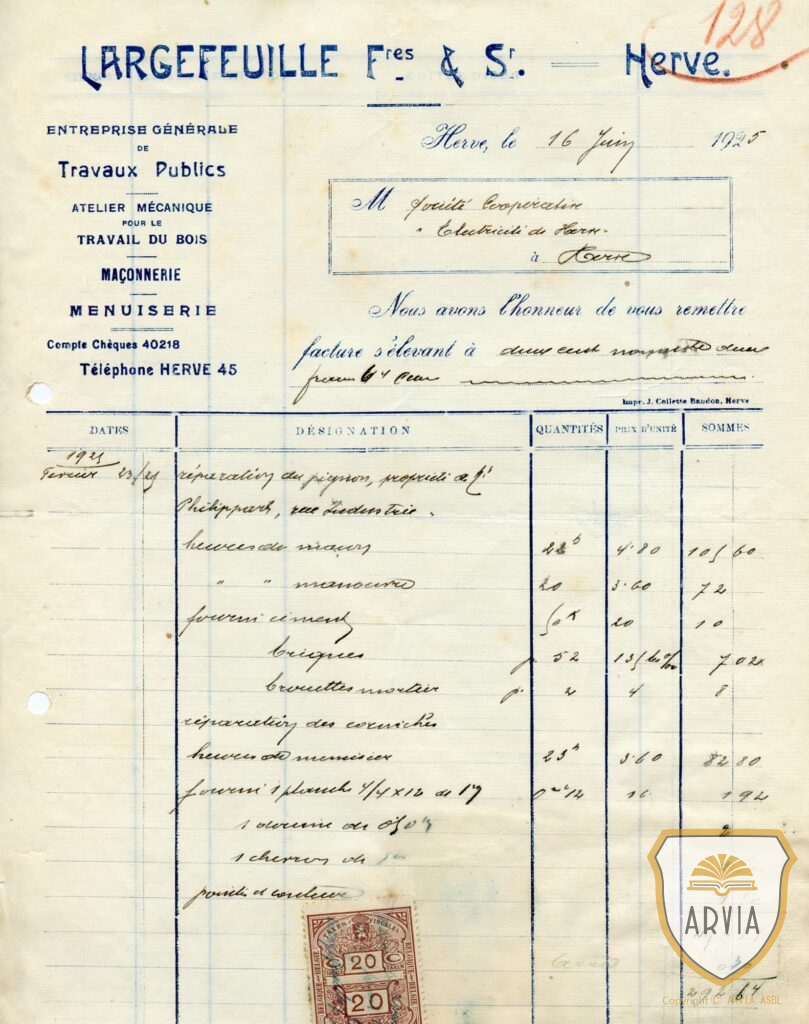 128
LARGEFEUILLE Fres & Sr. Herve.
ENTREPRISE GÉNÉRALE
DE
Travaux Publics
ATELIER MÉCANIQUE
POUR LE
TRAVAIL DU BOIS
MAÇONNERIE
MENUISERIE
Compte Chèques 40218
Téléphone HERVE 45
Herve, le 16 Juin 1925
M Société Coopérative
" Electricité de Herve
à Herve
Nous avons l'honneur de vous remettre
facture s'élevant à deux cent deux
francs 64 Cent
Impr. J. Collette Baudon, Herve
DATES DÉSIGNATION QUANTITÉS PRIX D'UNITÉ SOMMES
1925
Février 23/25 réparation du pignon, propriété de
Philippart, rue Industrie.
heures de maçon 22h 4.80 105 60
" " manoeuvre 20 3.60 72
fourni ciment 50k 20 10
briques p. 52 135 7 02
brouettes mortier p. 2 4 8
réparation des corniches
heures de menuisier 23h 3.60 82 80
fourni 1 planche 4/4 x 12 de 1m 0m 12 16 1 92
1 de 0,50m
1 chevron de 1m
pointes et couleur
TAXES FISCALES
BELGIQUE - BELGIË
20
20
ARVIA
Copyright © ARVIA ASBL
292 64